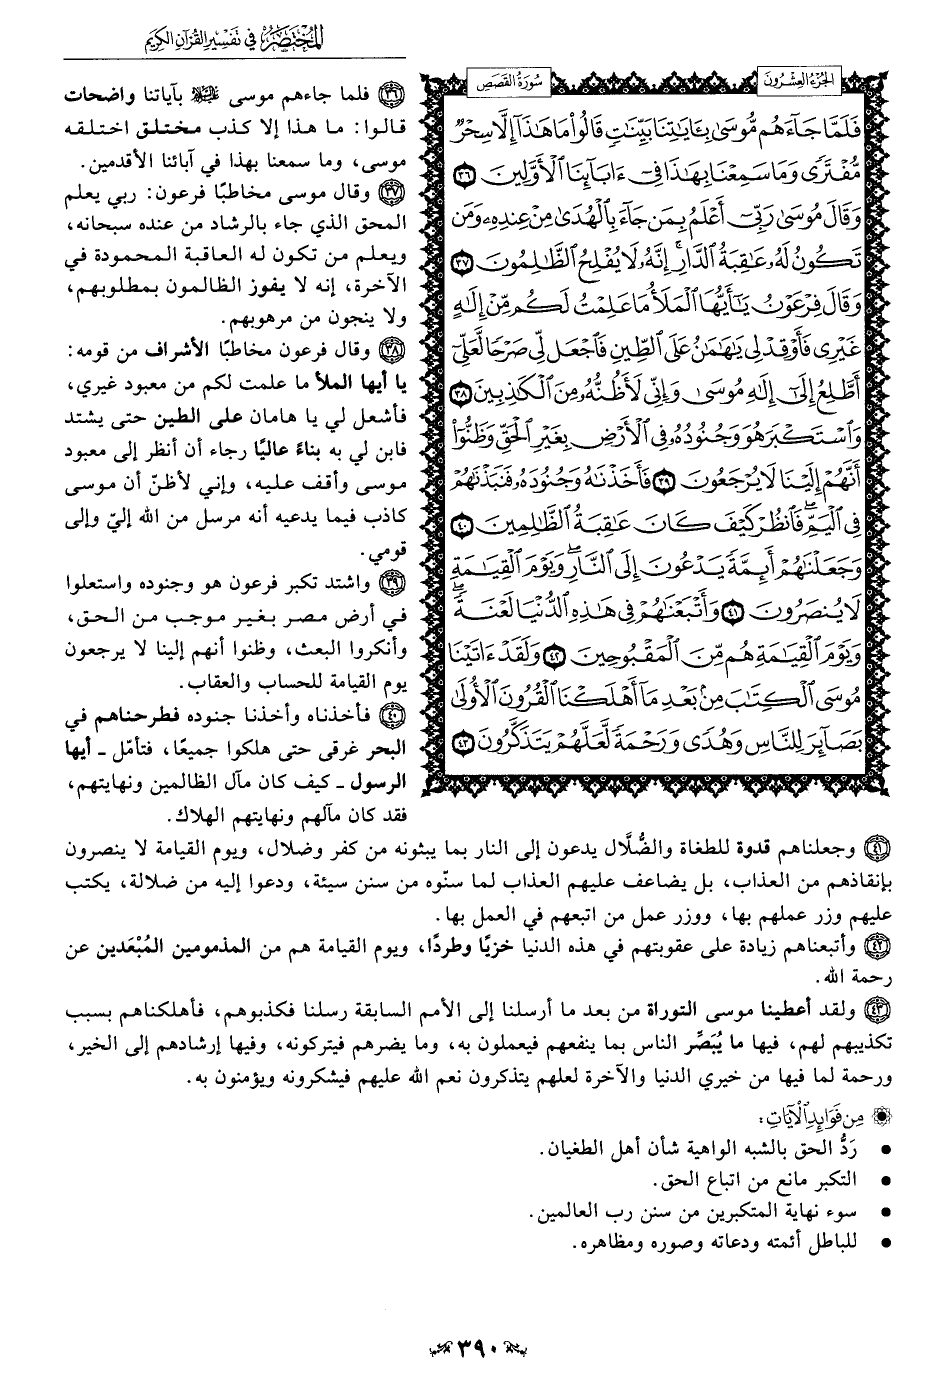 المختصر في تفسير القرآن الكريم
الجزء العشرون
سورة القصص
فَلَمَّا جَآءَهُم مُّوسَىٰ بِـَٔايَٰتِنَا بَيِّنَٰتٖ قَالُواْ مَا هَٰذَآ إِلَّا سِحۡرٞ
مُّفۡتَرٗى وَمَا سَمِعۡنَا بِهَٰذَا فِيٓ ءَابَآئِنَا ٱلۡأَوَّلِينَ ٣٦
وَقَالَ مُوسَىٰ رَبِّيٓ أَعۡلَمُ بِمَن جَآءَ بِٱلۡهُدَىٰ مِنۡ عِندِهِۦ وَمَن
تَكُونُ لَهُۥ عَٰقِبَةُ ٱلدَّارِۚ إِنَّهُۥ لَا يُفۡلِحُ ٱلظَّٰلِمُونَ ٣٧
وَقَالَ فِرۡعَوۡنُ يَٰٓأَيُّهَا ٱلۡمَلَأُ مَا عَلِمۡتُ لَكُم مِّنۡ إِلَٰهٍ
غَيۡرِي فَأَوۡقِدۡ لِي يَٰهَٰمَٰنُ عَلَى ٱلطِّينِ فَٱجۡعَل لِّي صَرۡحٗا لَّعَلِّيٓ
أَطَّلِعُ إِلَىٰٓ إِلَٰهِ مُوسَىٰ وَإِنِّي لَأَظُنُّهُۥ مِنَ ٱلۡكَٰذِبِينَ ٣٨
وَٱسۡتَكۡبَرَ هُوَ وَجُنُودُهُۥ فِي ٱلۡأَرۡضِ بِغَيۡرِ ٱلۡحَقِّ وَظَنُّوٓاْ
أَنَّهُمۡ إِلَيۡنَا لَا يُرۡجَعُونَ ٣٩ فَأَخَذۡنَٰهُ وَجُنُودَهُۥ فَنَبَذۡنَٰهُمۡ
فِي ٱلۡيَمِّۖ فَٱنظُرۡ كَيۡفَ كَانَ عَٰقِبَةُ ٱلظَّٰلِمِينَ ٤٠
وَجَعَلۡنَٰهُمۡ أَئِمَّةٗ يَدۡعُونَ إِلَى ٱلنَّارِۖ وَيَوۡمَ ٱلۡقِيَٰمَةِ
لَا يُنصَرُونَ ٤١ وَأَتۡبَعۡنَٰهُمۡ فِي هَٰذِهِ ٱلدُّنۡيَا لَعۡنَةٗۖ
وَيَوۡمَ ٱلۡقِيَٰمَةِ هُم مِّنَ ٱلۡمَقۡبُوحِينَ ٤٢ وَلَقَدۡ ءَاتَيۡنَا
مُوسَى ٱلۡكِتَٰبَ مِنۢ بَعۡدِ مَآ أَهۡلَكۡنَا ٱلۡقُرُونَ ٱلۡأُولَىٰ
بَصَآئِرَ لِلنَّاسِ وَهُدٗى وَرَحۡمَةٗ لَّعَلَّهُمۡ يَتَذَكَّرُونَ ٤٣
٣٦ فلما جاءهم موسى عليه السلام بآياتنا واضحات
قالوا: ما هذا إلا كذب مختلق اختلقه
موسى، وما سمعنا بهذا في آبائنا الأقدمين.
٣٧ وقال موسى مخاطبًا فرعون: ربي يعلم
المحق الذي جاء بالرشاد من عنده سبحانه،
ويعلم من تكون له العاقبة المحمودة في
الآخرة، إنه لا يفوز الظالمون بمطلوبهم،
ولا ينجون من مرهوبهم.
٣٨ وقال فرعون مخاطبًا الأشراف من قومه:
يا أيها الملأ ما علمت لكم من معبود غيري،
فأشعل لي يا هامان على الطين حتى يشتد
فابن لي به بناءً عاليًا رجاء أن أنظر إلى معبود
موسى وأقف عليه، وإني لأظنّ أن موسى
كاذب فيما يدعيه أنه مرسل من الله إليّ وإلى
قومي.
٣٩ واشتد تكبر فرعون هو وجنوده واستعلوا
في أرض مصر بغير موجب من الحق،
وأنكروا البعث، وظنوا أنهم إلينا لا يرجعون
يوم القيامة للحساب والعقاب.
٤٠ فأخذناه وأخذنا جنوده فطرحناهم في
البحر غرقى حتى هلكوا جميعًا، فتأمّل ـ أيها
الرسول ـ كيف كان مآل الظالمين ونهايتهم،
فقد كان مآلهم ونهايتهم الهلاك.
٤١ وجعلناهم قدوة للطغاة والضُّلَّال يدعون إلى النار بما يبثونه من كفر وضلال، ويوم القيامة لا ينصرون
بإنقاذهم من العذاب، بل يضاعف عليهم العذاب لما سنّوه من سنن سيئة، ودعوا إليه من ضلالة، يكتب
عليهم وزر عملهم بها، ووزر عمل من اتبعهم في العمل بها.
٤٢ وأتبعناهم زيادة على عقوبتهم في هذه الدنيا خزيًا وطردًا، ويوم القيامة هم من المذمومين المُبْعَدين عن
رحمة الله.
٤٣ ولقد أعطينا موسى التوراة من بعد ما أرسلنا إلى الأمم السابقة رسلنا فكذبوهم، فأهلكناهم بسبب
تكذيبهم لهم، فيها ما يُبَصِّر الناس بما ينفعهم فيعملون به، وما يضرهم فيتركونه، وفيها إرشادهم إلى الخير،
ورحمة لما فيها من خيري الدنيا والآخرة لعلهم يتذكرون نعم الله عليهم فيشكرونه ويؤمنون به.
من فوائد الآيات:
• رَدُّ الحق بالشبه الواهية شأن أهل الطغيان.
• التكبر مانع من اتباع الحق.
• سوء نهاية المتكبرين من سنن رب العالمين.
• للباطل أئمته ودعاته وصوره ومظاهره.
٣٩٠